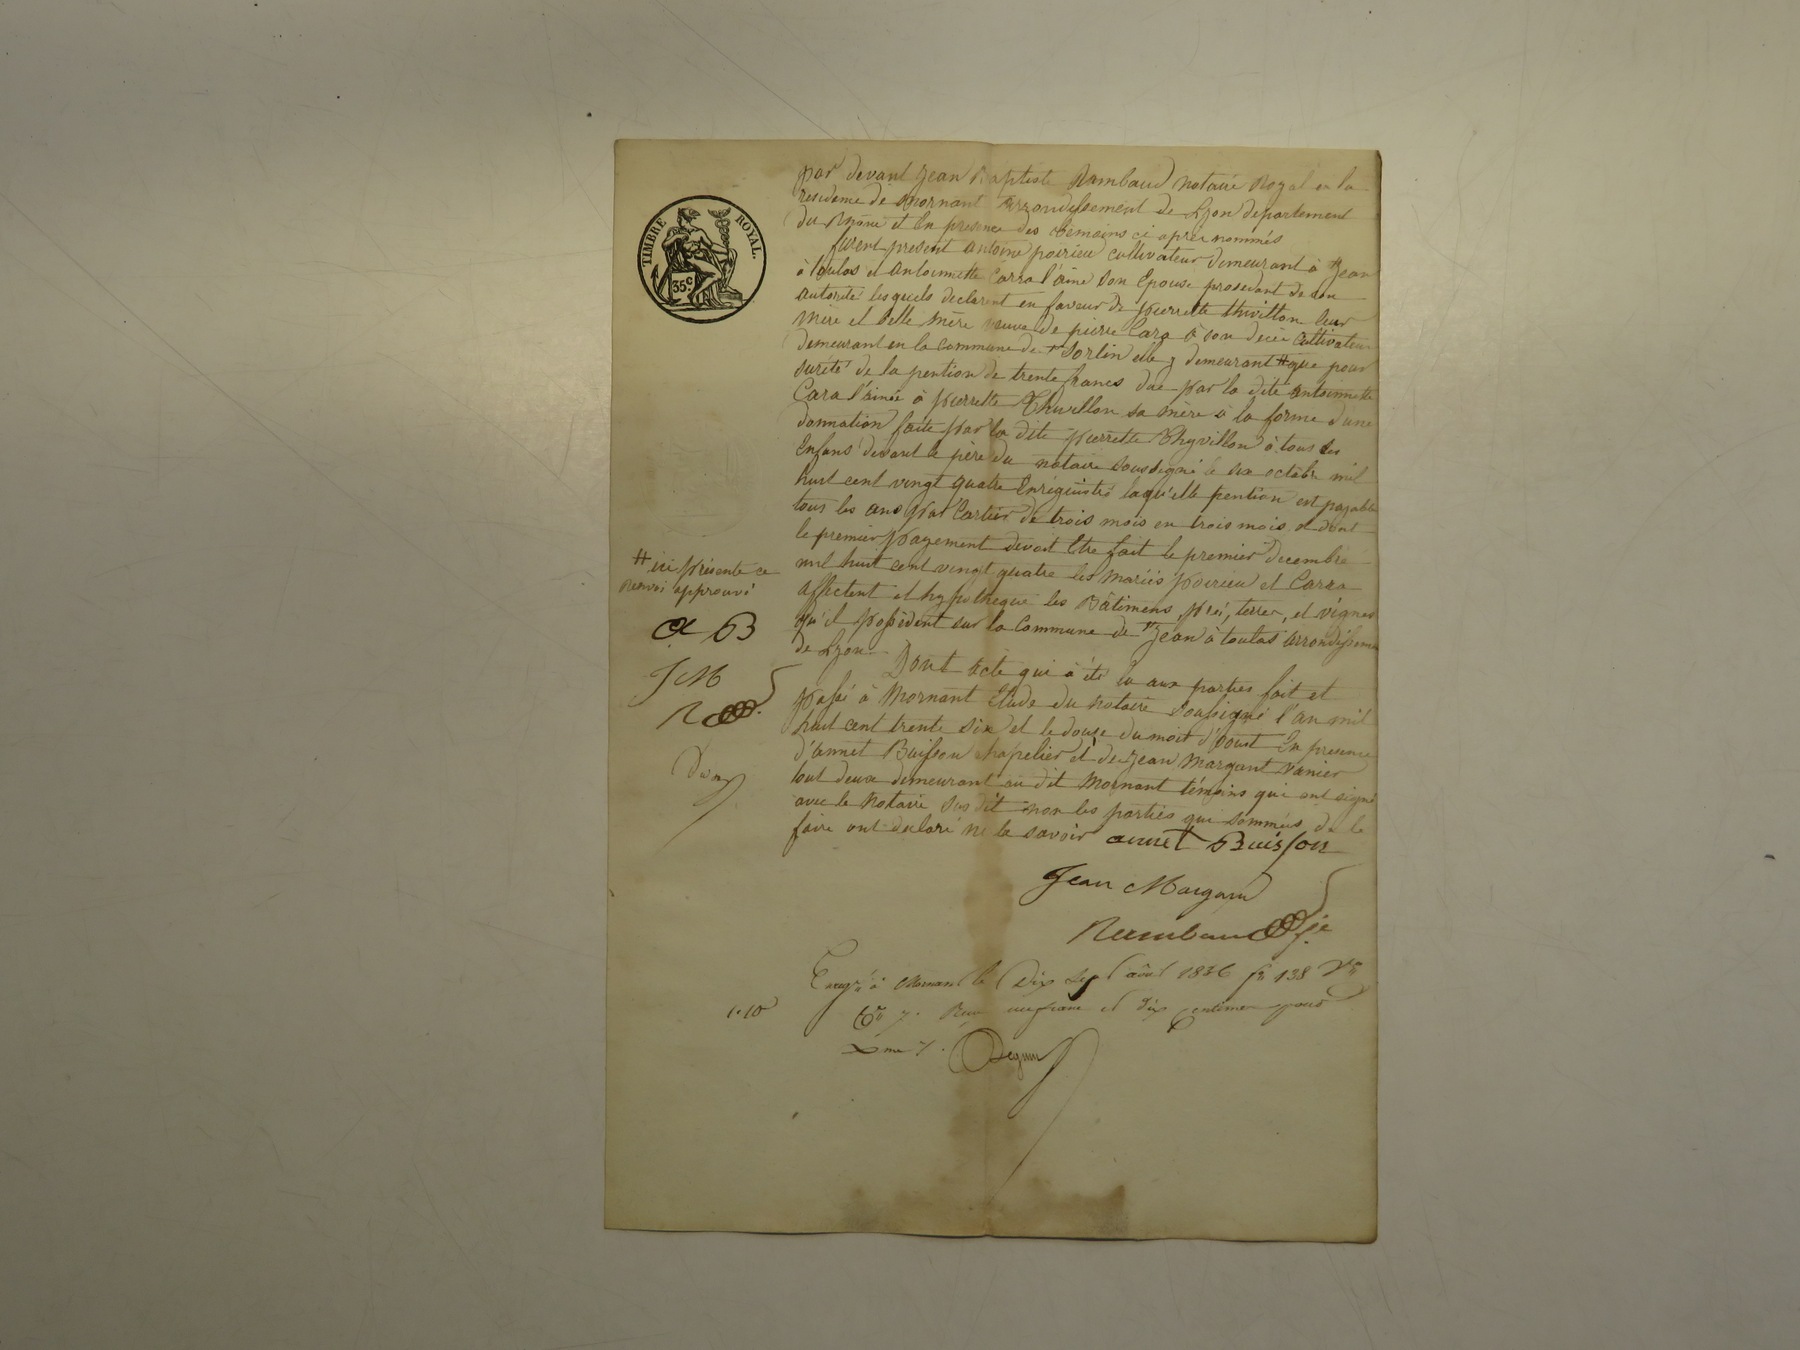 TIMBRE ROYAL.
35 c.
par devant Jean Baptiste Rambaud notaire Royal en la
residence de Mornant arrondissement de Lyon departement
du Rhône et En presence des temoins ci après nommés
furent present antoine poirieu cultivateur demeurant à St Jean
à toulas et antoinette Carra l'ainé son Epouse procedant de son
autorité lesquels declarent en faveur de pierrette thivillon leur
Mere et belle Mère veuve de pierre Cara à son décès cultivateur
demeurant en la commune de St Sorlin elle y demeurant # que pour
sureté de la pention de trente francs due par la dite antoinette
Cara l'ainée à pierrette Thivillon sa mère à la forme d'une
donnation faite par la dite pierrette Thyvillon à tous ses
Enfans devant le père du notaire soussigné le six octobre mil
huit cent vingt quatre Enregistré laqu'elle pention est payable
tous les ans par Cartier de trois mois en trois mois et dont
le premier payement devoit Etre fait le premier Decembre
mil huit cent vingt quatre les Mariés poirieu et Carra
affectent et hypotheque les Bâtimens, prés, terres, et vignes
qu'il possèdent sur la Commune de St Jean à toulas arrondissement
de Lyon. Dont acte qui à été lu aux parties fait et
passé à Mornant Etude du Notaire Soussigné l'an mil
huit cent trente six et le douze du mois d'Aoust En presence
d'annet Buisson chapelier et de Jean Margant vanier
tout deux demeurant au dit Mornant témoins qui ont signé
avec le Notaire sus dit non les parties que sommées de le
faire ont declaré ne le savoir annet Buisson
Jean Margant
Rambaud
# ici présente ce
renvoi approuvé
a B
J M
R
Enregé à Mornant le Dix Sept août 1836 fo 138 Vo
Co 7. Reçu un franc et dix Centimes pour
1.10